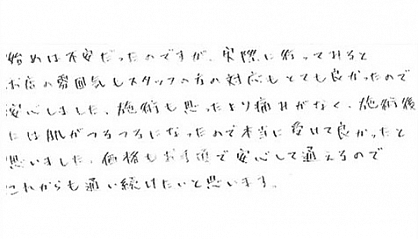 始めは不安だったのですが、実際に行ってみると
お店の雰囲気もスタッフの方の対応もとても良かったので
安心しました。施術も思ったより痛みがなく、施術後
には肌がつるつるになったので本当に受けて良かったと
思いました。価格もお手頃で安心して通えるので
これからも通い続けたいと思います。